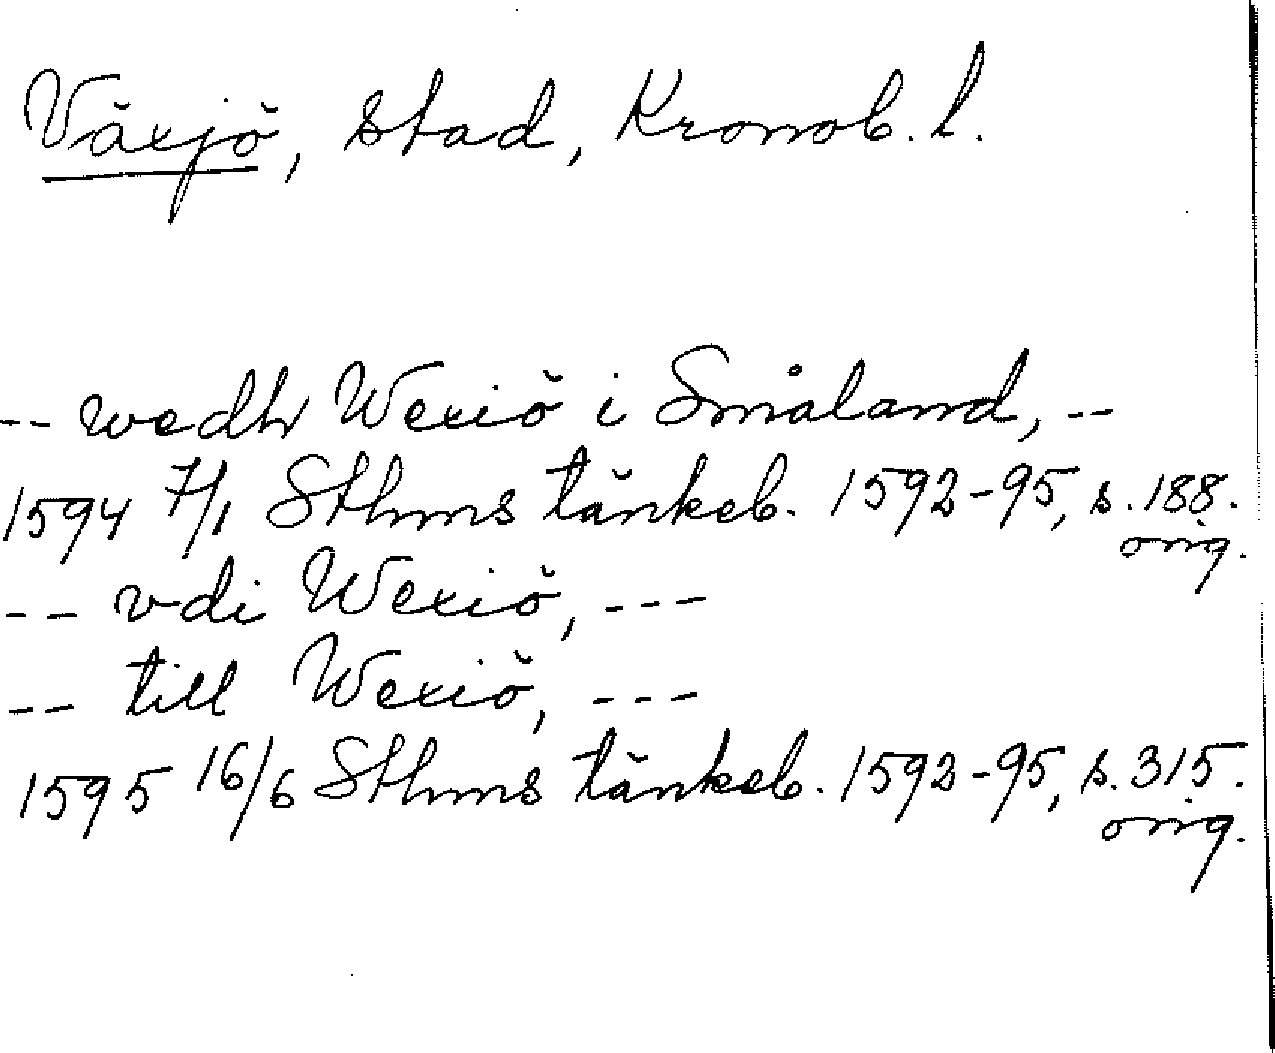 Växjö, stad, Kronob. l.
-- wedh Wexiö i Småland, --
1594 7/1 Sthms tänkeb. 1592-95, s. 188.
orig.
-- vdi Wexiö, ---
-- till Wexiö, ---
1595 16/6 Sthms tänkeb. 1592-95, s. 315.
orig.